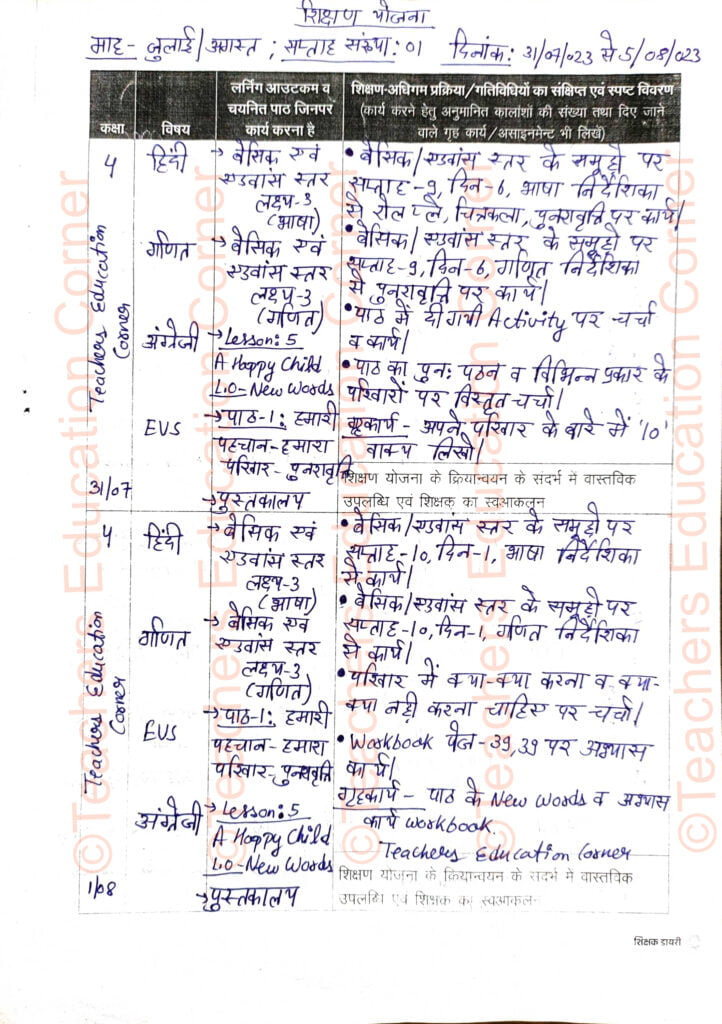 शिक्षण योजना
माह- जुलाई/अगस्त ; सप्ताह संख्या: 01 दिनांक: 31/07/023 से 5/08/023
कक्षा
विषय
लर्निंग आउटकम व
चयनित पाठ जिनपर
कार्य करना है
शिक्षण-अधिगम प्रक्रिया/गतिविधियों का संक्षिप्त एवं स्पष्ट विवरण
(कार्य करने हेतु अनुमानित कालांशों की संख्या तथा दिए जाने
वाले गृह कार्य/असाइनमेंट भी लिखें)
4
Teachers Education
Corner
31/07
हिंदी
→ बेसिक एवं
एडवांस स्तर
लक्ष्य-3
(भाषा)
• बेसिक/एडवांस स्तर के समूहों पर
सप्ताह-9, दिन-6, भाषा निर्देशिका
से रोल प्ले, चित्रकला, पुनरावृत्ति पर कार्य।
गणित
→ बेसिक एवं
एडवांस स्तर
लक्ष्य-3
(गणित)
• बेसिक/एडवांस स्तर के समूहों पर
सप्ताह-9, दिन-6, गणित निर्देशिका
से पुनरावृत्ति पर कार्य।
अंग्रेजी
→ Lesson: 5
A Happy Child
L.O-New Words
• पाठ में दी गयी Activity पर चर्चा
व कार्य।
EVS
→ पाठ-1: हमारी
पहचान-हमारा
परिवार-पुनरावृत्ति
→ पुस्तकालय
• पाठ का पुनः पठन व विभिन्न प्रकार के
परिवारों पर विस्तृत चर्चा।
गृहकार्य - अपने परिवार के बारे में '10'
वाक्य लिखो।
शिक्षण योजना के क्रियान्वयन के संदर्भ में वास्तविक
उपलब्धि एवं शिक्षक का स्वआकलन
4
Teachers Education
Corner
1/08
हिंदी
→ बेसिक एवं
एडवांस स्तर
लक्ष्य-3
(भाषा)
• बेसिक/एडवांस स्तर के समूहों पर
सप्ताह-10, दिन-1, भाषा निर्देशिका
से कार्य।
गणित
→ बेसिक एवं
एडवांस स्तर
लक्ष्य-3
(गणित)
• बेसिक/एडवांस स्तर के समूहों पर
सप्ताह-10, दिन-1, गणित निर्देशिका
से कार्य।
EVS
→ पाठ-1: हमारी
पहचान-हमारा
परिवार-पुनरावृत्ति
• परिवार में क्या-क्या करना व क्या-
क्या नहीं करना चाहिए पर चर्चा।
अंग्रेजी
→ Lesson: 5
A Happy Child
L.O-New Words
→ पुस्तकालय
• Workbook पेज-39,39 पर अभ्यास
कार्य।
गृहकार्य - पाठ के New Words व अभ्यास
कार्य workbook.
Teachers Education Corner
शिक्षण योजना के क्रियान्वयन के संदर्भ में वास्तविक
उपलब्धि एवं शिक्षक का स्वआकलन
शिक्षक डायरी
©Teachers Education Corner
©Teachers Education Corner
©Teachers Education Corner
©Teachers Education Corner
©Teachers Education Corner